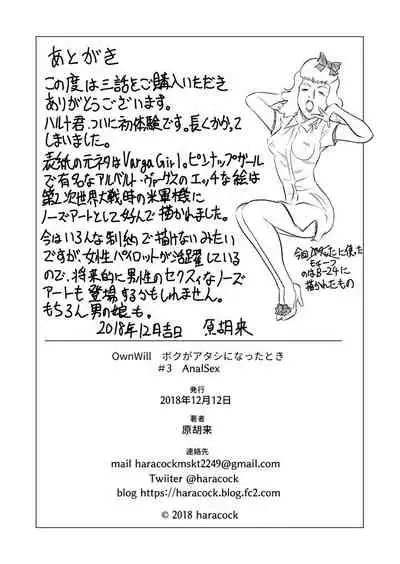 あとがき
この度は三話をご購入いただき
ありがとうございます。
ハルナ君、ついに初体験です。長くかかって
しまいました。
表紙の元ネタはVarga Girl。ピンナップガール
で有名なアルベルト・ヴァーガスのエッチな絵は
第2次世界大戦時の米軍機に
ノーズアートとして好んで描かれました。
今はいろんな制約で描けないみたい
ですが、女性パイロットが活躍している
ので、将来的に男性のセクスィなノーズ
アートも登場するかもしれません。
もちろん男の娘も。
2018年12月吉日 原胡来
今回
モチーフ
のはB-24に
描かれたもの
OwnWill ボクがアタシになったとき
#3 AnalSex
発行
2018年12月12日
著者
原胡来
連絡先
mail haracockmskt2249@gmail.com
Twiiter @haracock
blog https://haracock.blog.fc2.com
© 2018 haracock